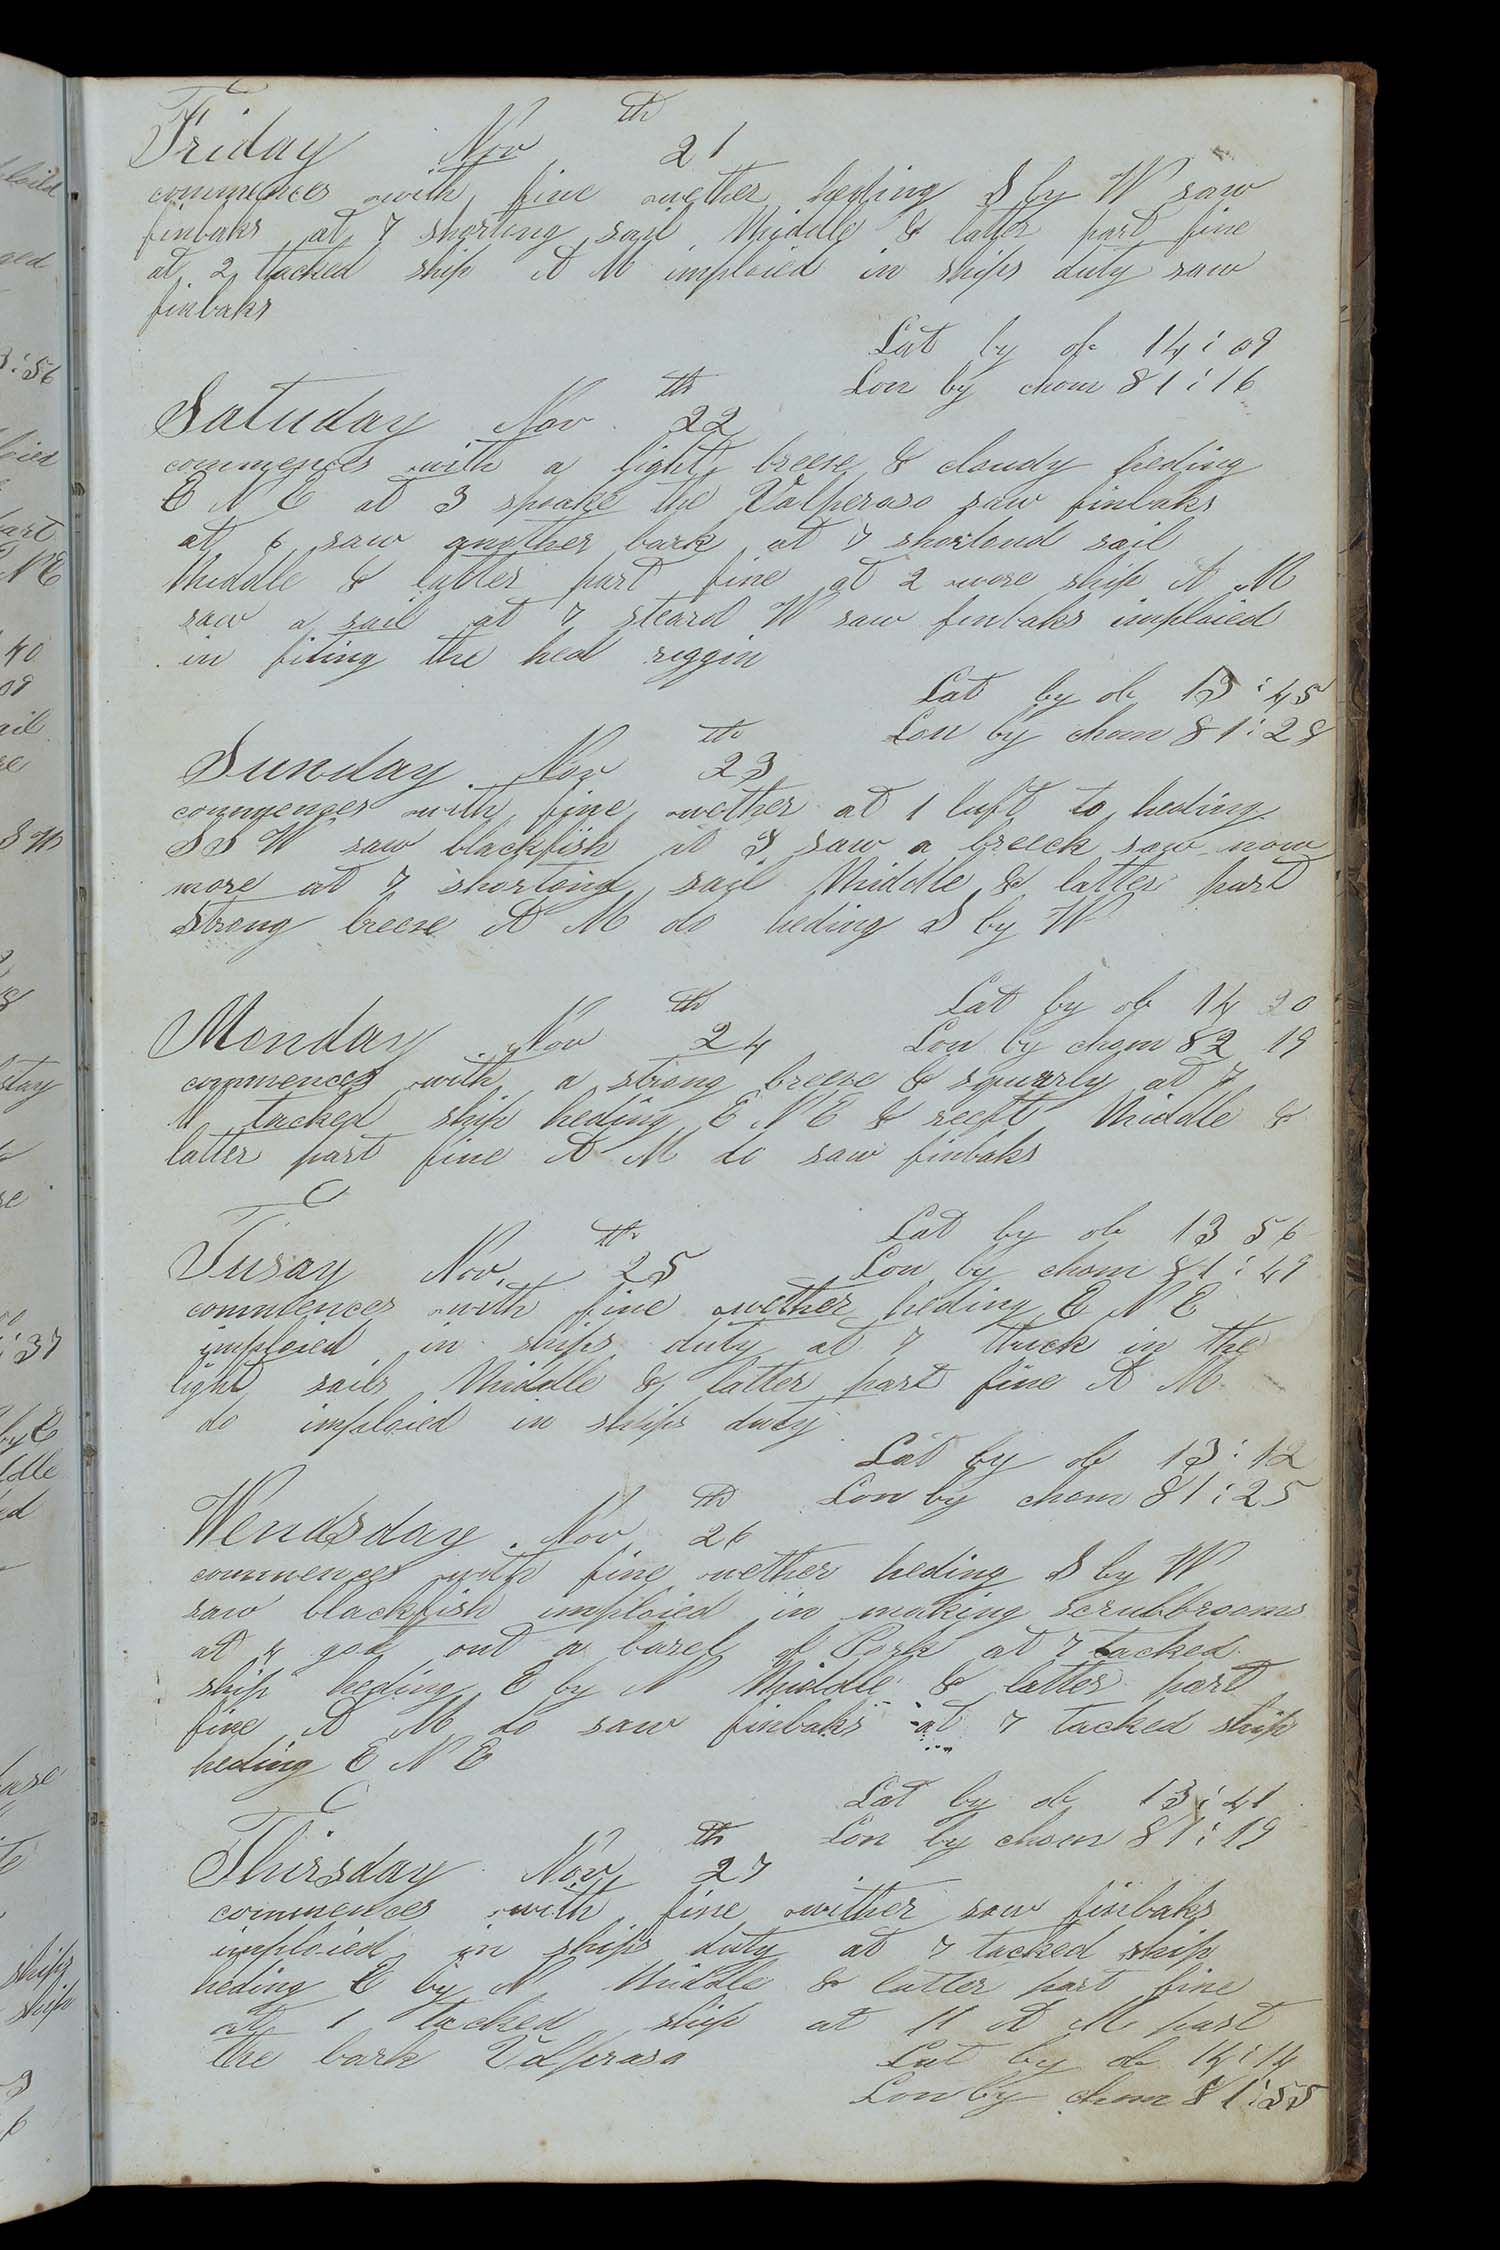 Friday Nov 21th
commences with fine wether heding S by W saw
finbaks at 7 shorting sail Middle & latter part fine
at 2 tacked ship A M imploied in ships duty saw
finbaks
Lat by ob 14 : 09
Lon by chom 81 : 16
Satuday Nov 22th
commences with a light breese & cloudy heding
E N E at 3 spoake the Valperaso saw finbaks
at 6 saw another bark at 7 shortond sail
Middle & latter part fine at 2 wore ship A M
saw a sail at 7 steard W saw finbaks imploied
in fiting the hed riggin
Lat by ob 13 : 45
Lon by chom 81 : 28
Sunday Nov 23th
commences with fine wether at 1 luft to heding
S S W saw blackfish at 3 saw a breeck saw now
more at 7 shortoind sail Middle & latter part
strong breese A M do heding S by W
Lat by ob 14 20
Lon by chom 82 19
Monday Nov 24th
commences with a strong breese & squarly at 7
tacked ship heding E N E & reeft Middle &
latter part fine A M do saw finbaks
Lat by ob 13 56
Lon by chom 81 : 49
Tusay Nov 25th
commences with fine wether heding E N E
imploied in ships duty at 7 thock in the
light sails Middle & latter part fine A M
do imploied in ships duty
Lat by ob 13 : 12
Lon by chom 81 : 25
Wendsday Nov 26th
commences with fine wether heding S by W
saw blackfish imploied in making scrubbrooms
at 4 got out a barel of Pork at 7 tacked
ship heding E by N Middle & latter part
fine A M do saw finbaks at 7 tacked ship
heding E N E
Lat by ob 13 : 41
Lon by chom 81 : 19
Thirsday Nov 27th
commences with fine wither saw finbaks
imploied in ships duty at 7 tacked ship
heding E by N Middle & latter part fine
at 1 tacked ship at 11 A M past
the bark Valperaso
Lat by ob 14 : 14
Lon by chom 81 : 55